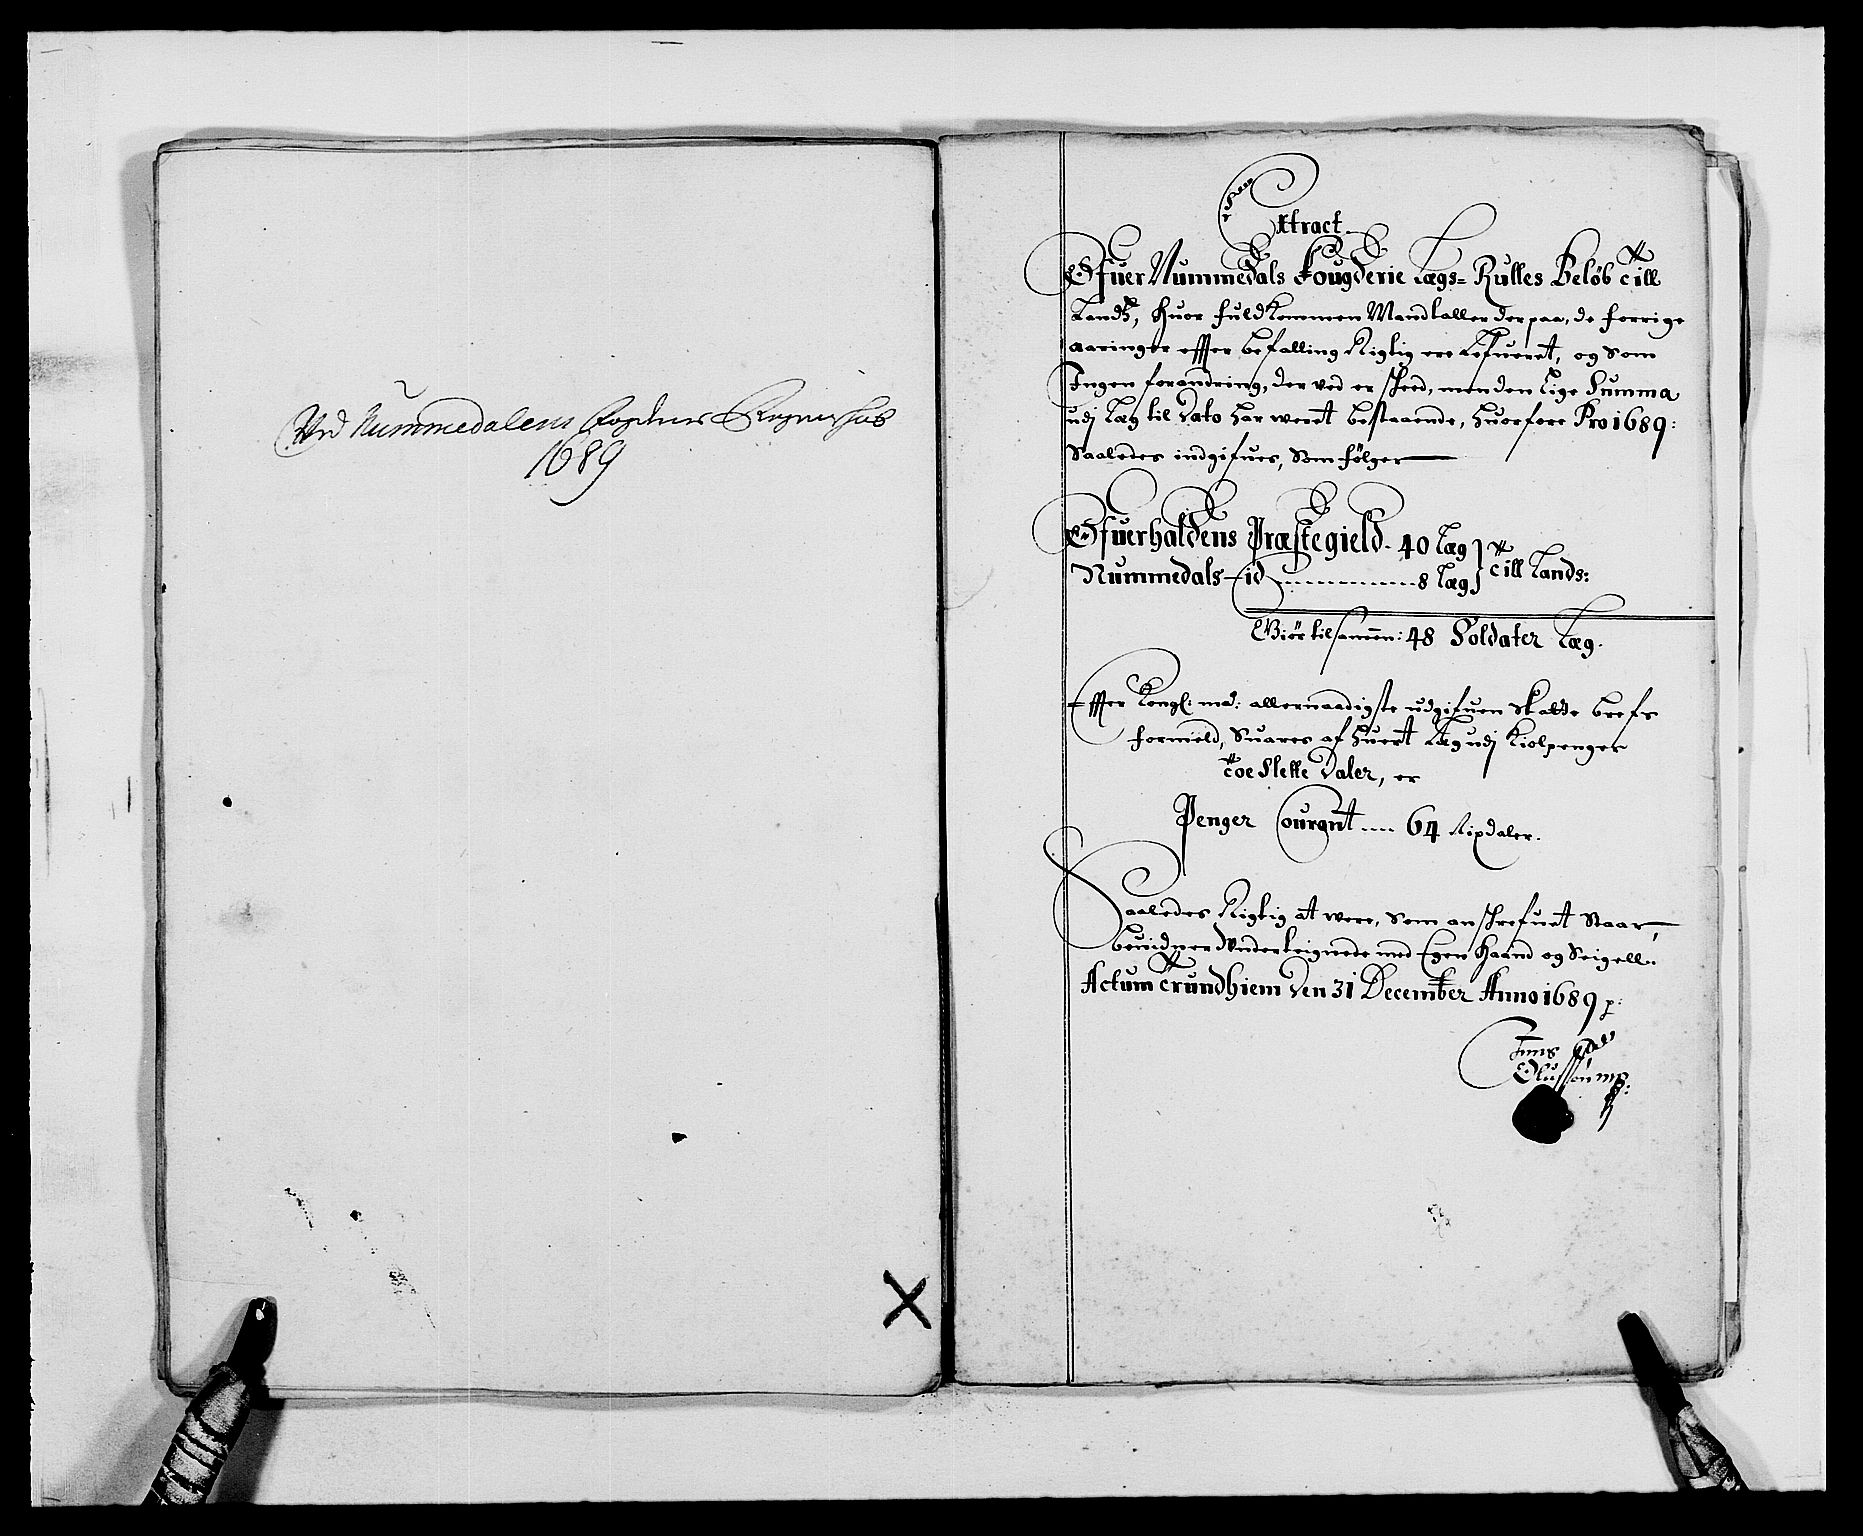 Ved Nummedalens Fogderies Regenskab
1689
Extract
Ofuer Nummedals Fougderie Lægs= Rulles Beløb till
Lands, huor fuldkommen Mandtaller der paa, de forrige
aaringer effter befalling Rigtig ere Lefueret, og som
Ingen forandring, der ved er skeed, men den lige Summa
udj Læg til Dato har weret bestaaende, huorfore Pro 1689:
Saaledes indgifues, som følger
Ofuerhaldens Præstegield. 40 Læg
Nummedals - id 8 Læg } till Lands:
Giør tilsamen: 48 Soldater Læg.
Effter Kongl: ma: allernaadigste udgifuen Skatte brefs
formeld, Suares af huert Læg udj Kiolpenger
toe Slette Daler, er
Penger Courant 64 Rixdaler.
Saaledes Rigtig at were, som anskrefuet Staar,
beuidner Underteignede med Egen Haand og Seigell.
Actum Trundhiem den 31 December Anno 1689 p:
Olufsøn mp: